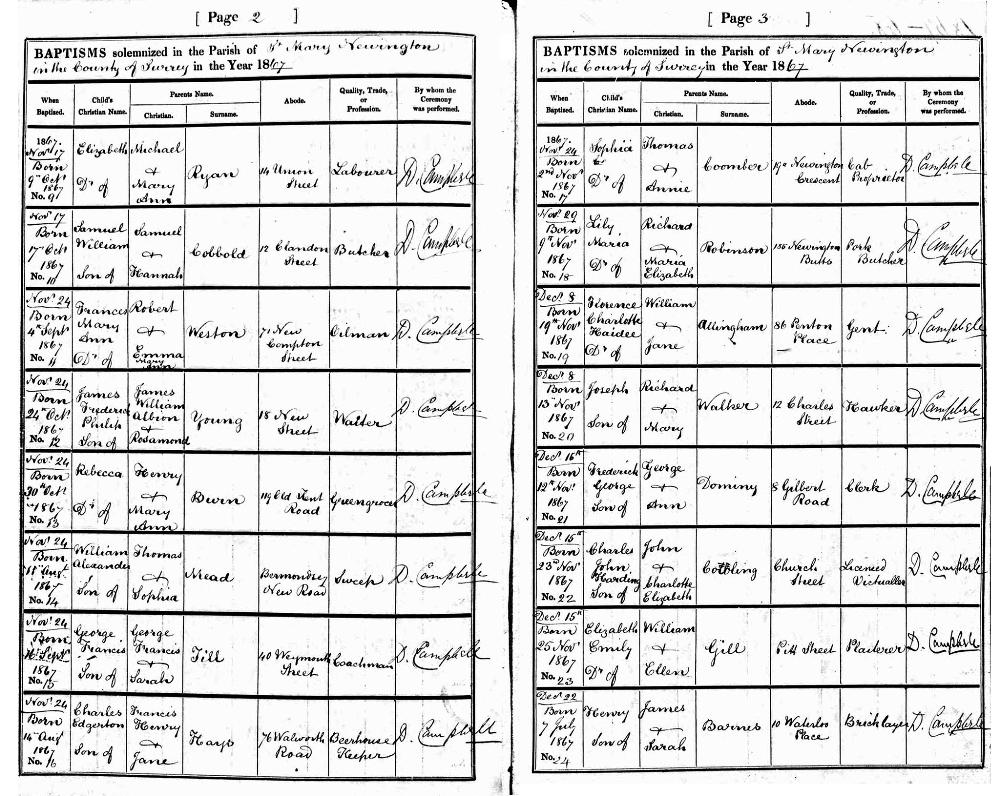 [ Page 2 ]
BAPTISMS solemnized in the Parish of St Mary Newington
in the County of Surrey in the Year 1867
When Baptised. Child's Christian Name. Parents Name. Christian. Surname. Abode. Quality, Trade, or Profession. By whom the Ceremony was performed.
1867. Novr 17 Born 9th Octr 1867 No. 9 Elizabeth Dr of Michael & Mary Ann Ryan 14 Union Street Labourer D. Campbell
Novr 17 Born 17 Octr 1867 No. 10 Samuel William Son of Samuel & Hannah Cobbold 12 Clandon Street Butcher D. Campbell
Novr 24 Born 4th Septr 1867 No. 11 Frances Mary Ann Dr of Robert & Emma Mary Ann Weston 71 New Compton Street Oilman D. Campbell
Novr 24 Born 24th Octr 1867 No. 12 James Frederick Philip Son of James William Albion & Rosamond Young 18 New Street Waiter D. Campbell
Novr 24 Born 30th Octr 1867 No. 13 Rebecca Dr of Henry & Mary Ann Burn 119 Old Kent Road Greengrocer D. Campbell
Novr 24 Born Augt 1867 No. 14 William Alexander Son of Thomas & Sophia Mead Bermondsey New Road Sweep D. Campbell
Novr 24 Born Septr 1867 No. 15 George Francis Son of George Francis & Sarah Till 40 Weymouth Street Coachman D. Campbell
Novr 24 Born 14th Augt 1867 No. 16 Charles Edgerton Son of Francis Henry & Jane Hays 76 Walworth Road Beerhouse Keeper D. Campbell
[ Page 3 ]
BAPTISMS solemnized in the Parish of St Mary Newington
in the County of Surrey in the Year 1867
When Baptised. Child's Christian Name. Parents Name. Christian. Surname. Abode. Quality, Trade, or Profession. By whom the Ceremony was performed.
1867. Novr 24 Born 2nd Novr 1867 No. 17 Sophia Dr of Thomas & Annie Coomber Newington Crescent Cab Proprietor D. Campbell
Novr 29 Born 9th Novr 1867 No. 18 Lily Maria Dr of Richard & Maria Elizabeth Robinson 155 Newington Butts Pork Butcher D. Campbell
Decr 8 Born 19th Novr 1867 No. 19 Florence Charlotte Haidee Dr of William & Jane Allingham 86 Penton Place Gent. D. Campbell
Decr 8 Born 13th Novr 1867 No. 20 Joseph Son of Richard & Mary Walker 12 Charles Street Hawker D. Campbell
Decr Born 12th Novr 1867 No. 21 Frederick George Son of George & Ann Dominy 8 Gilbert Road Clerk D. Campbell
Decr 15th Born 23rd Novr 1867 No. 22 Charles John Harding Son of John & Charlotte Elizabeth Church Street Licensed Victualler D. Campbell
Decr 15th Born 25 Novr 1867 No. 23 Elizabeth Emily Dr of William & Ellen Gill Pitt Street Plasterer D. Campbell
Decr 22 Born 7 July 1867 No. 24 Henry Son of James & Sarah Barnes 10 Waterloo Place Bricklayer D. Campbell